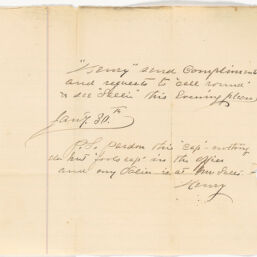 "Henry" send Compliments
and requests to "call round"
& see "Nellie" this Evening please
Jany. 30th
P.S. Pardon this "cap" nothing
in but "foolscap" in the office
and my is at
Henry